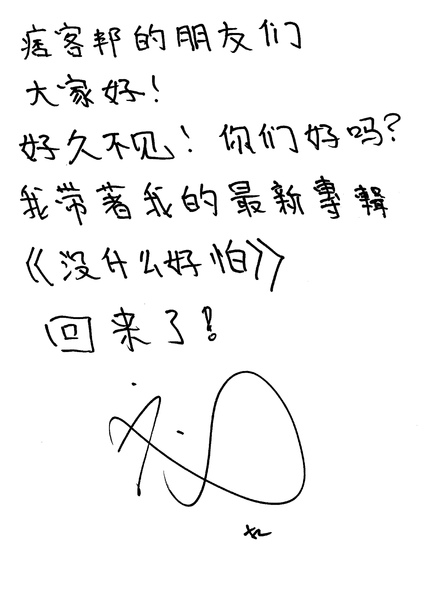 痞客邦的朋友们
大家好!
好久不见! 你们好吗?
我带著我的最新專輯
《没什么好怕》
回来了!